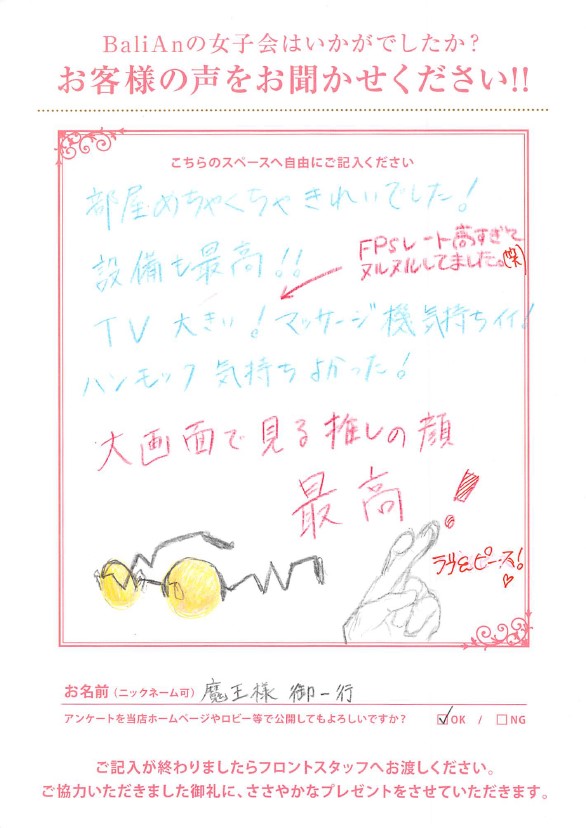 BaliAnの女子会はいかがでしたか?
お客様の声をお聞かせください!!
こちらのスペースへ自由にご記入ください
部屋めちゃくちゃきれいでした!
設備も最高!!
FPSレート高すぎて
ヌルヌルしてました。(笑)
TV 大きい! マッサージ機気持ちイイ!
ハンモック 気持ちよかった!
大画面で見る推しの顔
最高!
ラヴ&ピース!
お名前(ニックネーム可) 魔王様 御一行
アンケートを当店ホームページやロビー等で公開してもよろしいですか? ☑OK / □NG
ご記入が終わりましたらフロントスタッフへお渡しください。
ご協力いただきました御礼に、ささやかなプレゼントをさせていただきます。